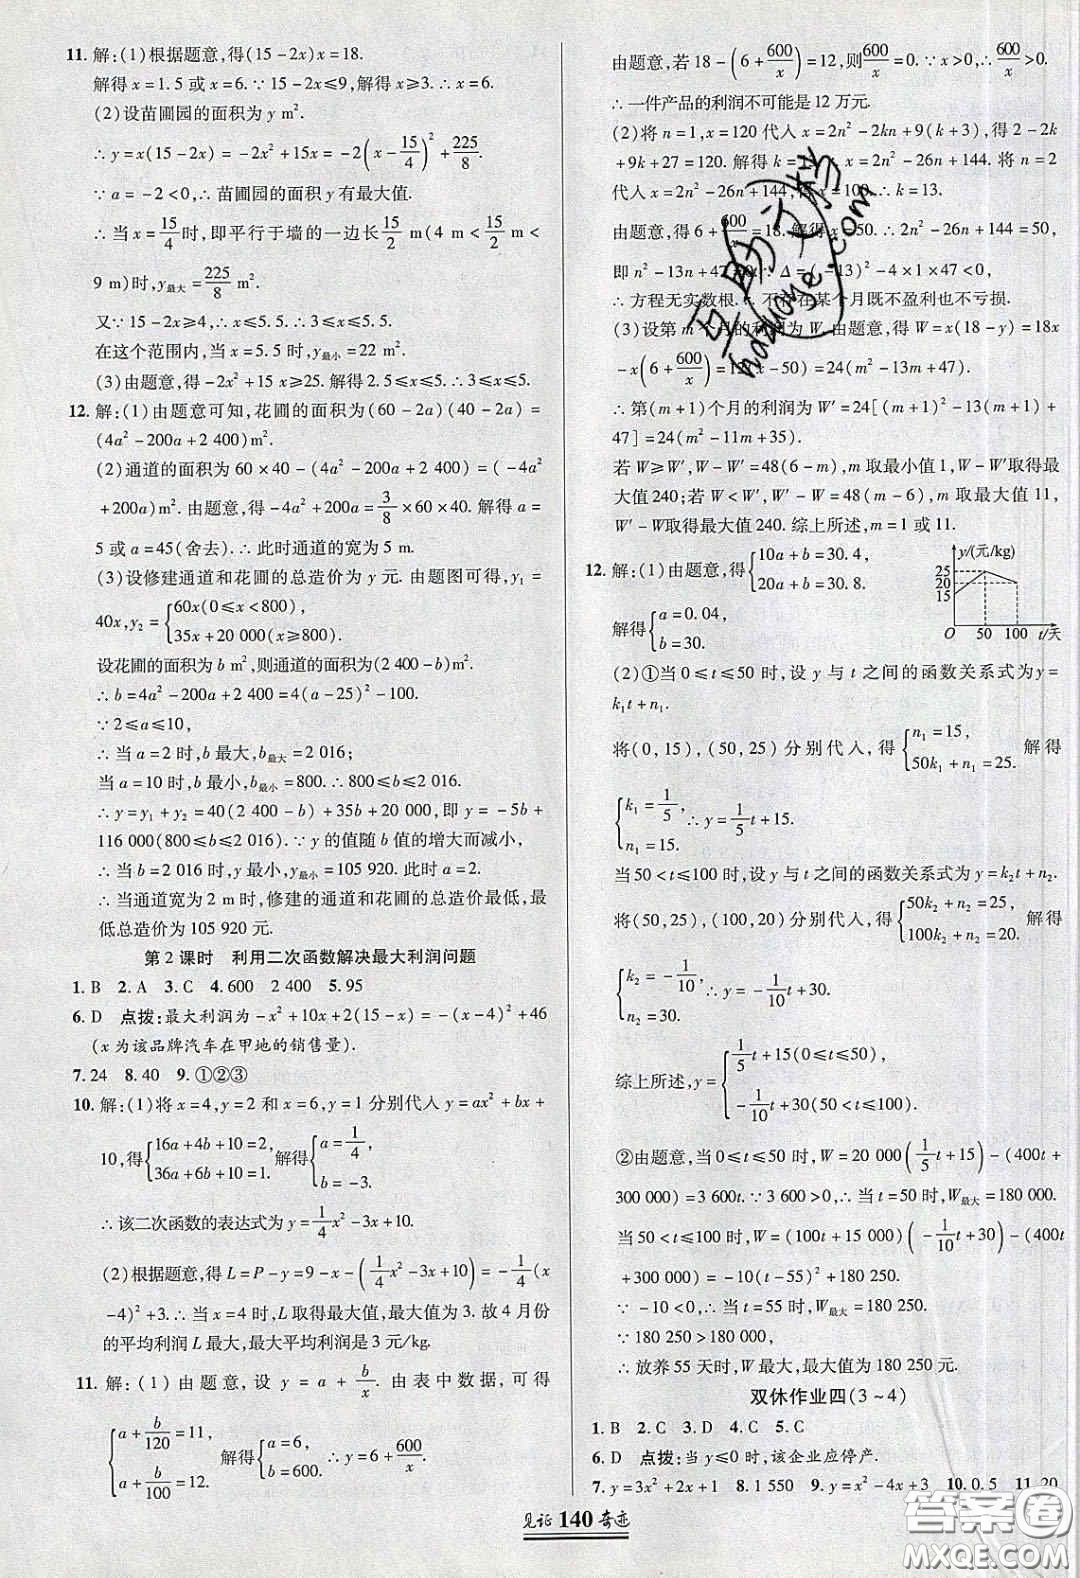 11. 解:(1)根据题意,得(15-2x)x=18.
解得 x=1.5 或 x=6.∵15-2x≤9,解得 x≥3.∴x=6.
(2)设苗圃园的面积为 y m².
∴y=x(15-2x)=-2x²+15x=-2(x-15/4)²+225/8.
∵a=-2<0,∴苗圃园的面积 y 有最大值.
∴当 x=15/4时,即平行于墙的一边长15/2 m(4 m<15/2 m<
9 m)时,y最大=225/8 m².
又∵15-2x≥4,∴x≤5.5.∴3≤x≤5.5.
在这个范围内,当 x=5.5 时,y最小=22 m².
(3)由题意,得-2x²+15x≥25.解得 2.5≤x≤5.∴3≤x≤5.
12. 解:(1)由题意可知,花圃的面积为(60-2a)(40-2a)=
(4a²-200a+2 400)m².
(2)通道的面积为 60×40-(4a²-200a+2 400)=(-4a²
+200a)m².由题意,得-4a²+200a=3/8×60×40.解得 a=
5 或 a=45(舍去).∴此时通道的宽为 5 m.
(3)设修建通道和花圃的总造价为 y 元.由题图可得,y₁=
40x,y₂={60x(0≤x<800),
35x+20 000(x≥800).
设花圃的面积为 b m²,则通道的面积为(2 400-b)m².
∴b=4a²-200a+2 400=4(a-25)²-100.
∵2≤a≤10,
∴当 a=2 时,b 最大,b最大=2 016;
当 a=10 时,b 最小,b最小=800.∴800≤b≤2 016.
∴y=y₁+y₂=40(2 400-b)+35b+20 000,即 y=-5b+
116 000(800≤b≤2 016).∵y 的值随 b 值的增大而减小,
∴当 b=2 016 时,y 最小,y最小=105 920.此时 a=2.
∴当通道宽为 2 m 时,修建的通道和花圃的总造价最低,最
低总造价为 105 920 元.
第 2 课时 利用二次函数解决最大利润问题
1. B 2. A 3. C 4. 600 2 400 5. 95
6. D 点拨:最大利润为-x²+10x+2(15-x)=-(x-4)²+46
(x 为该品牌汽车在甲地的销售量).
7. 24 8. 40 9. ①②③
10. 解:(1)将 x=4,y=2 和 x=6,y=1 分别代入 y=ax²+bx+
10,得{16a+4b+10=2,
36a+6b+10=1.解得{a=1/4,
b=-3.
∴该二次函数的表达式为 y=1/4x²-3x+10.
(2)根据题意,得 L=P-y=9-x-(1/4x²-3x+10)=-1/4(x
-4)²+3.∴当 x=4 时,L 取得最大值,最大值为 3.故 4 月份
的平均利润 L 最大,最大平均利润是 3 元/kg.
11. 解:(1)由题意,设 y=a+b/x.由表中数据,可得
{a+b/120=11,
a+b/100=12.解得{a=6,
b=600.∴y=6+600/x.
由题意,若 18-(6+600/x)=12,则600/x=0.∵x>0,∴600/x>0.
∴一件产品的利润不可能是 12 万元.
(2)将 n=1,x=120 代入 x=2n²-2kn+9(k+3),得 2-2k
+9k+27=120.解得 k=13.∴x=2n²-26n+144.将 n=2
代入 x=2n²-26n+144,得 x=100.∴k=13.
由题意,得 6+600/x=18.解得 x=50.∴2n²-26n+144=50,
即 n²-13n+47=0.∵Δ=(-13)²-4×1×47<0,
∴方程无实数根.∴不存在某个月既不盈利也不亏损.
(3)设第 m 个月的利润为 W.由题意,得 W=x(18-y)=18x
-x(6+600/x)=12(x-50)=24(m²-13m+47).
∴第(m+1)个月的利润为 W′=24[(m+1)²-13(m+1)+
47]=24(m²-11m+35).
若 W≥W′,W-W′=48(6-m),m 取最小值 1,W-W′取得最
大值 240;若 W<W′,W′-W=48(m-6),m 取最大值 11,
W′-W取得最大值 240.综上所述,m=1 或 11.
12. 解:(1)由题意,得{10a+b=30.4,
20a+b=30.8.
解得{a=0.04,
b=30.
y/(元/kg)
25
20
15
O 50 100 t/天
(2)①当 0≤t≤50 时,设 y 与 t 之间的函数关系式为 y=
k₁t+n₁.
将(0,15),(50,25)分别代入,得{n₁=15,
50k₁+n₁=25.解得
{k₁=1/5,
n₁=15.∴y=1/5t+15.
当 50<t≤100 时,设 y 与 t 之间的函数关系式为 y=k₂t+n₂.
将(50,25),(100,20)分别代入,得{50k₂+n₂=25,
100k₂+n₂=20.解得
{k₂=-1/10,
n₂=30.∴y=-1/10t+30.
综上所述,y={1/5t+15(0≤t≤50),
-1/10t+30(50<t≤100).
②由题意,当 0≤t≤50 时,W=20 000(1/5t+15)-(400t+
300 000)=3 600t.∵3 600>0,∴当 t=50 时,W最大=180 000.
当 50<t≤100 时,W=(100t+15 000)(-1/10t+30)-(400t
+300 000)=-10(t-55)²+180 250.
∵-10<0,∴当 t=55 时,W最大=180 250.
∵180 250>180 000,
∴放养 55 天时,W 最大,最大值为 180 250 元.
双休作业四(3~4)
1. B 2. C 3. D 4. C 5. C
6. D 点拨:当 y≤0 时,该企业应停产.
7. y=3x²+2x+1 8. 1 550 9. y=x²-4x+3 10. 0.5 11. 20
见证 140 奇迹
互助文档
hdzuoye.com
答案圈
MXQE.COM